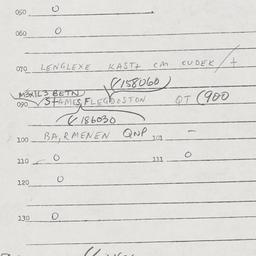 050 0
060 0
070 LENGLEXE KAST+ CM CUDEK/+
(158060)
090 STAMES FLEGDOSTON QT (900
(186030)
100 BA,RMENEN QNP 101 -
110 0 111 0
120 0
130 0